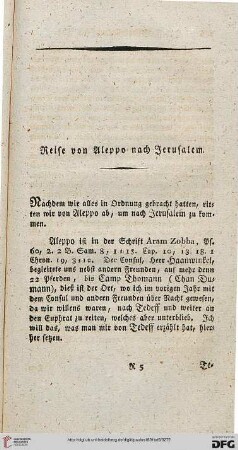 Reise von Aleppo nach Jerusalem.
Nachdem wir alles in Ordnung gebracht hatten, rit-
ten wir von Aleppo ab, um nach Jerusalem zu kom-
men.
Aleppo ist in der Schrift Aram Zobba, Ps.
60, 2. 2 B. Sam. 8, 1-13. Cap. 10, 13. 18. 1
Chron. 19, 3-10. Der Consul, Herr Haanwinkel,
begleitete uns nebst andern Freunden, auf mehr denn
22 Pferden, bis Camp Thomann (Chan Tu-
mann), dieß ist der Ort, wo ich im vorigen Jahr mit
dem Consul und andern Freunden über Nacht gewesen,
da wir willens waren, nach Tedeff und weiter an
den Euphrat zu reiten, welches aber unterblieb. Ich
will das, was man mir von Tedeff erzählt hat, hier-
her setzen.
R 5 Te-